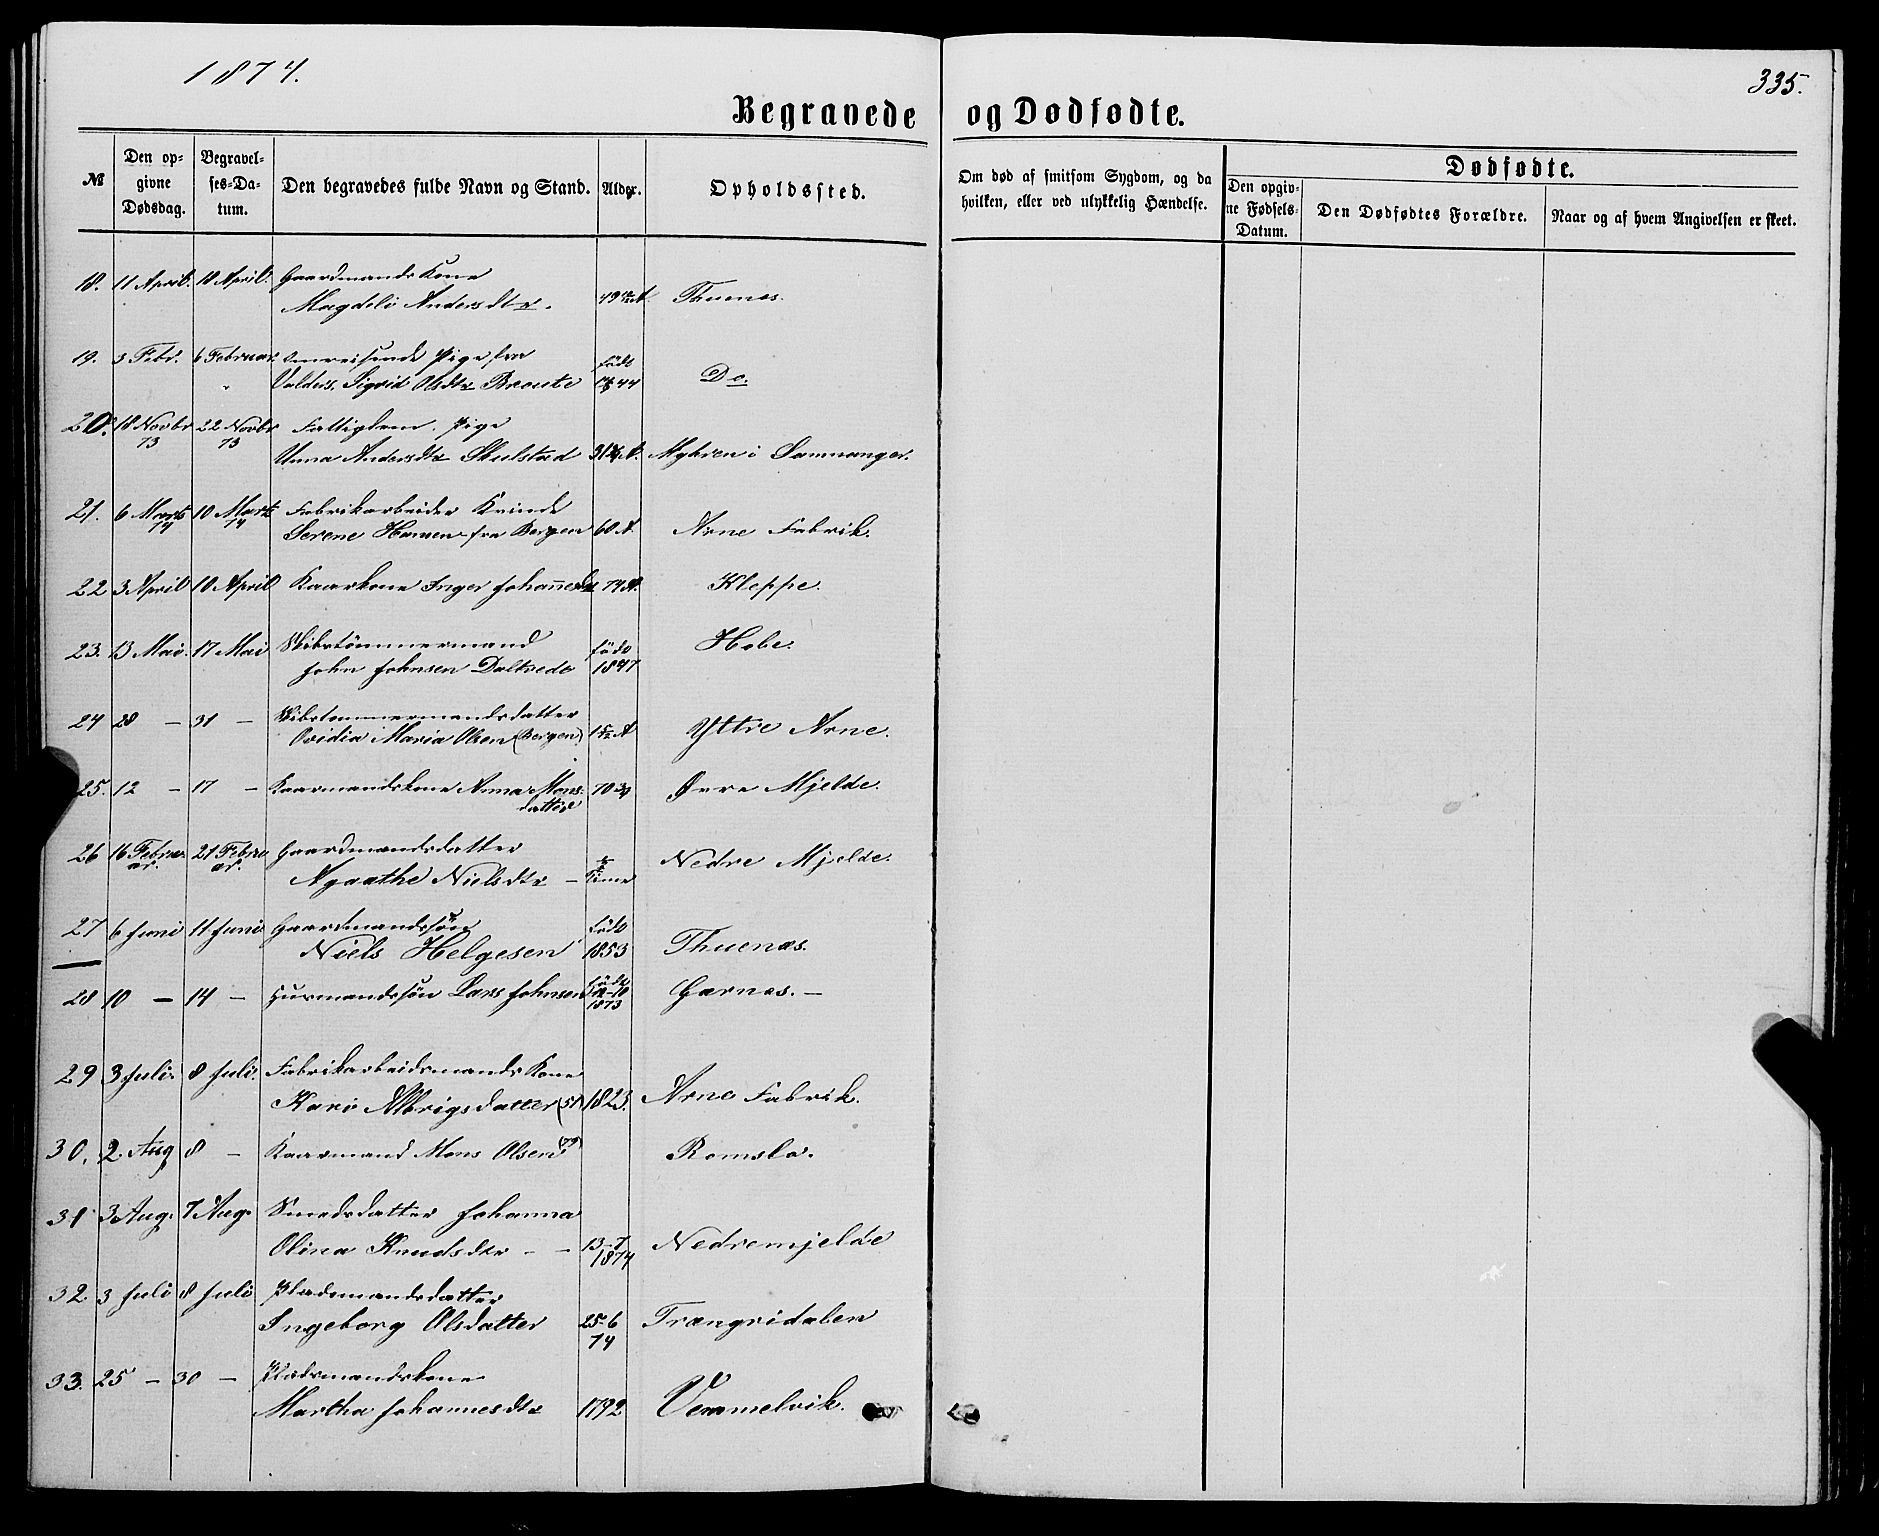 1874.
335.
Begravede og Dødfødte.
№
Den op-
givne
Dødsdag.
Begravel-
ses-Da-
tum.
Den begravedes fulde Navn og Stand.
Alder.
Opholdssted.
Om død af smitsom Sygdom, og da
hvilken, eller ved ulykkelig Hændelse.
Dødfødte.
Den opgiv-
ne Fødsels-
Datum.
Den Dødfødtes Forældre.
Naar og af hvem Angivelsen er skeet.
18. 11 April. 18 April. Gaardmands Kone
Magdeli Andersdtr. Thuenes.
19. 3 Febr. 6 Februar. Omreisende Pige fra født
Valders, Sigrid Olsdtr 44 Do.
20. 18 Novbr 22 Novbr Fattiglem. Pige
73 73
Anna Andersdtr Skulstad Myhren i Samnanger.
21. 6 Marts 10 Marts Fabrikarbeider Kvinde
74 74
Serene Hansen fra Bergen 60 A. Arne Fabrik.
22 3 April 10 April Kaarkone Inger Johannesdtr 74 A. Kleppe.
23. 13 Mai. 17 Mai Skibstømmermand født Hobe.
John Johnsen Daltvedt 1847
24 28 – 31 – Skibstømmermandsdatter
Ovidia Maria Olsen (Bergen) Yttre Arne.
25. 12 – 17 – Kaarmandskone Anna Mons- 70 Øvre Mjelde.
datter
26 16 Febru- 21 Febru- Gaardmandsdatter
ar. ar.
Agaathe Nielsdtr – Time Nedre Mjelde.
27 6 Juni 11 Juni Gaardmandssøn født
Niels Helgesen 1853 Thuenæs.
28 10 – 14 – Husmandssøn Lars Johnsen født Garnæs. –
1873
29 3 Juli. 8 Juli. Fabrikarbeidsmands Kone
Kari Albrigsdatter (51) 1823. Arne Fabrik.
30. 2. Aug 8 – Kaarmand Mons Olsen (79) Romslo.
31 3 Aug. 7 Aug. Smedsdatter Johanna
Olina Knudsdtr – – 13–7 Nedremjelde
1874
32. 3 Juli 8 Juli Pladsmandsdatter
Ingeborg Olsdatter 25–6 Trængridalen
74
33. 25 – 30 – Pladsmandskone
Martha Johannesdtr 1792 Vemmelvik.